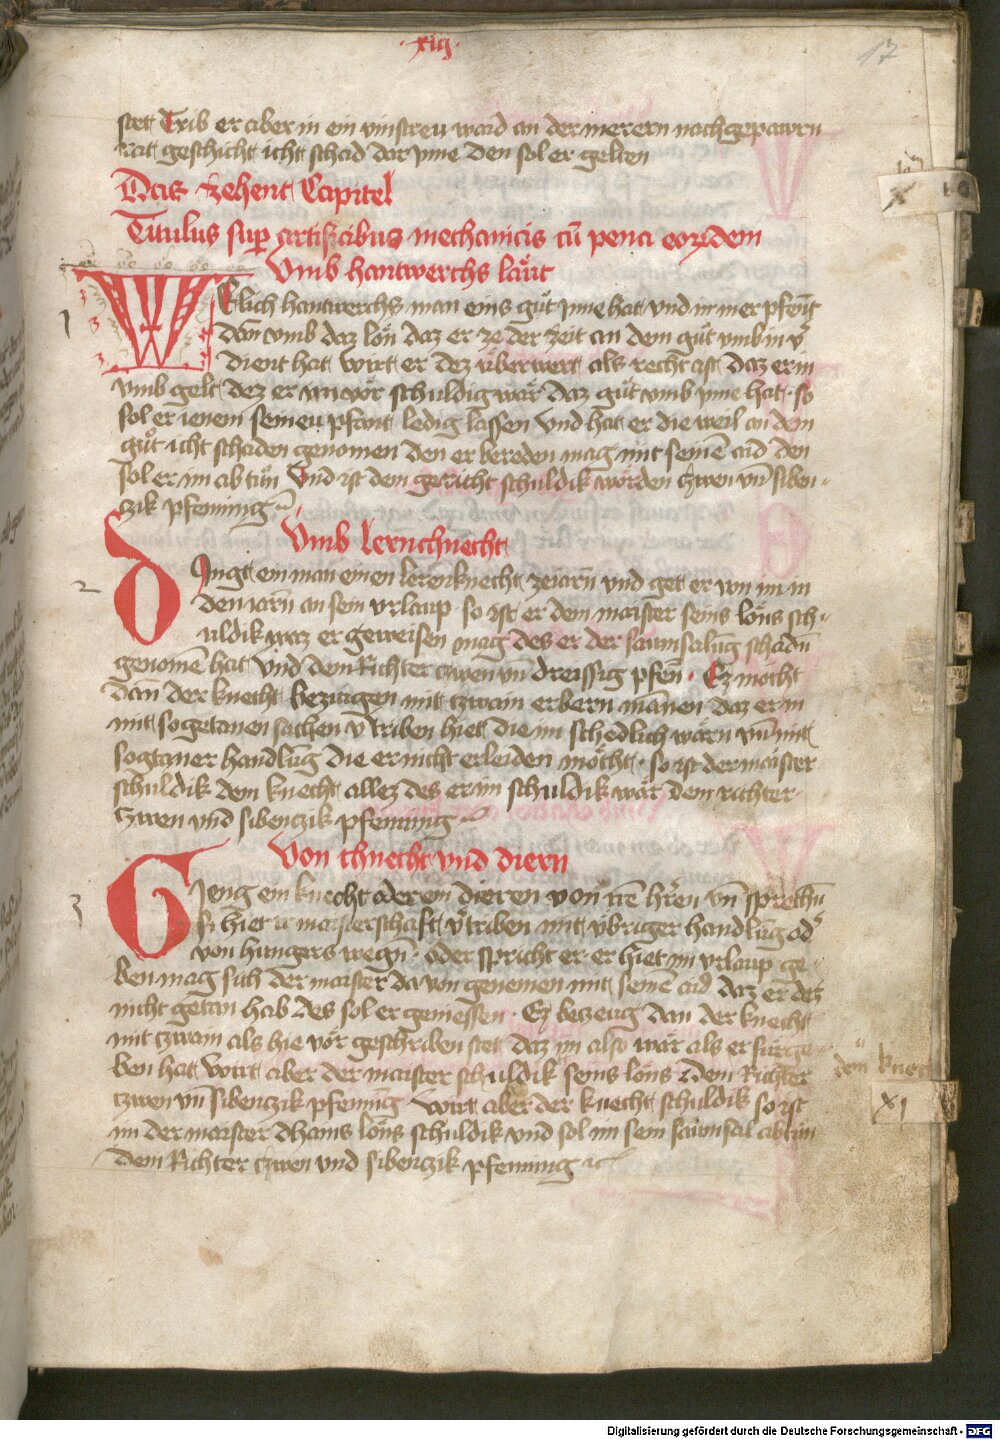 ·xiij·
17
stet Trib er aber in ein vinstreu waid an der merern nachgepawrn
rat geschicht icht schad dar jnne Den sol er gelten
Das zehent Capitel
Titulus sup artificibus mechanicis cū pena eorūdem
Vmb hantwerchs läwt
1
WElich hantwerchs man eins gůt jnne hat vnd im mer pfent
dan vmb daz lön daz er ze der zeit an dem gůt vmb in v̄
dient hat wirt er dez überwert als recht ist daz er in
vmb gelt dez er im vor schuldig wär daz gůt vmb jnne hat · so
sol er ienem seineu pfant ledig lassen Vnd hat er die weil an dem
gůt icht schaden genomen den er bereden mag mit seinē aid den
sol er im ab tůn Vnd ist dem gericht schuldik worden czwen vn̄ siben-
czik pfenning
Vmb lernchnecht
2
DIngt ein man einen lerenknecht ze iarn vnd get er von im in
den iarn an sein vrlaup · so ist er dem maister seins löns sch-
uldik waz er geweisen mag des er der saumsalūg schadn̄
genomē hat Vnd dem Richter czwen vn̄ dreissig pfen̄ · Ez möcht
dan̄ der knecht bezeugen mit tzwain erbern man̄en daz er in
mit sogetanen sachen v̄triben hiet die im schedlich wärn vn̄ mit
sogtaner handlūg die er nicht erleiden möcht · so ist der maister
schuldik dem knecht allez des er im schuldik wär dem richter
tzwen vnd sibenczik pfenning
Von chnecht vnd diern
3
GIeng ein knecht oder ein dieren von irē hrēn vn̄ sprechn̄
si hiet ir maisterschaft v̄triben mit übriger handlūg od
von hungers wegn̄ · oder spricht er er hiet im vrlaup ge-
ben mag sich der maister da von genemen mit seinē aid daz er dez
nicht getan hab des sol er geniessen · Ez bezeug dan der knecht
mit tzwain als hie vor geschriben stet daz im also wär als er fürge-
ben hat Wirt aber der maister schuldik seins löns Dem Richter
tzwen vn̄ sibenczik pfenning Wirt aber der knecht schuldik so ist
im der maister dhains löns schuldik vnd sol im sein saumsal abtůn
dem Richter czwen vnd sibenczik pfenning
x
10
xj
Digitalisierung gefördert durch die Deutsche Forschungsgemeinschaft - DFG